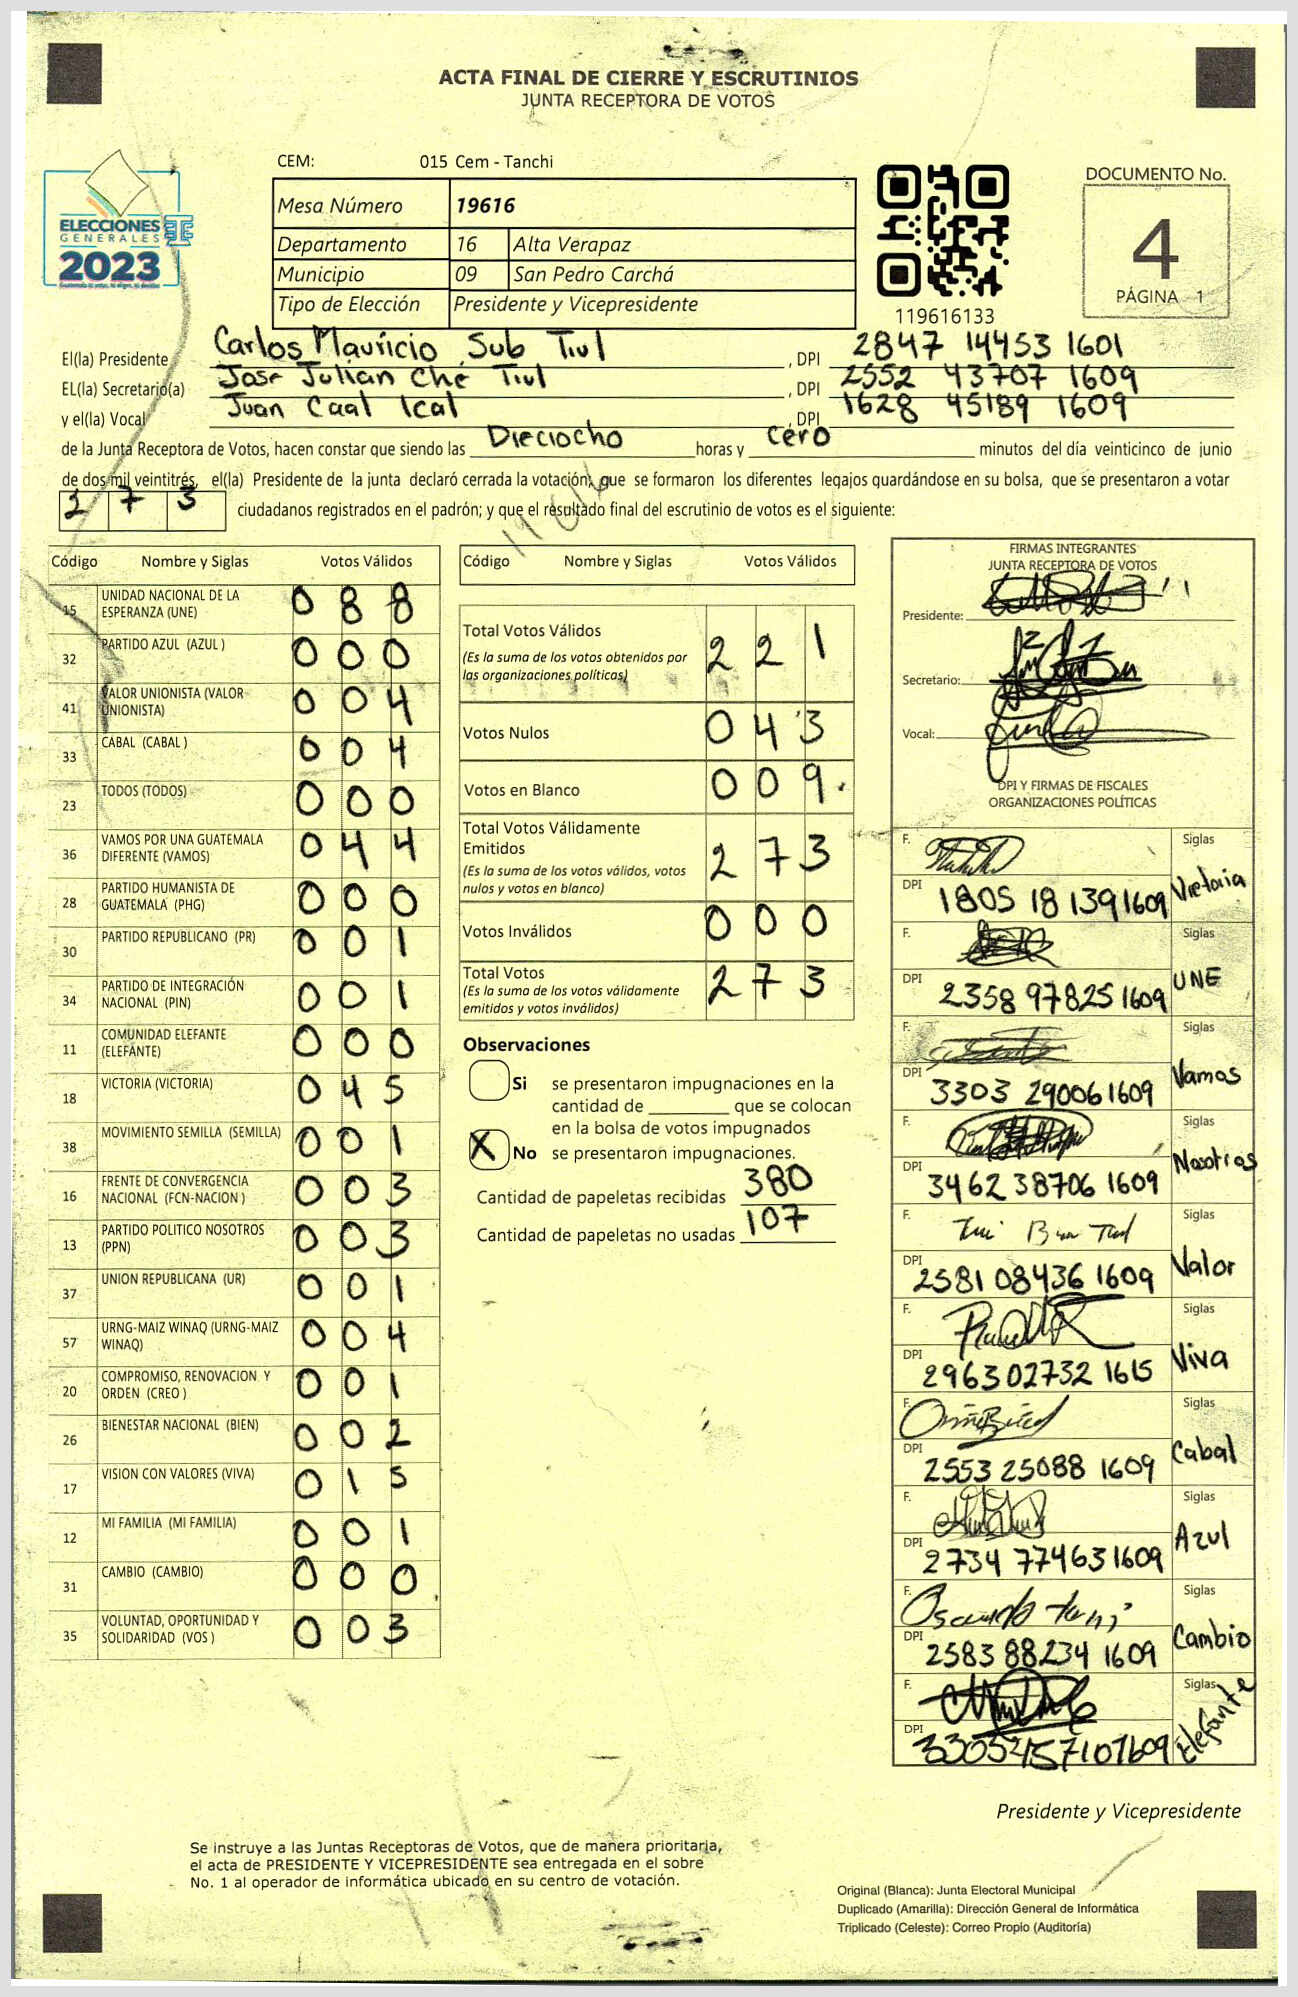 ACTA FINAL DE CIERRE Y ESCRUTINIOS
JUNTA RECEPTORA DE VOTOS
CEM: 015 Cem - Tanchi
ELECCIONES
GENERALES
2023
Mesa Número 19616
Departamento 16 Alta Verapaz
Municipio 09 San Pedro Carchá
Tipo de Elección Presidente y Vicepresidente
119616133
DOCUMENTO No.
4
PÁGINA 1
El(la) Presidente Carlos Mauricio Sub Tiul , DPI 2847 14453 1601
EL(la) Secretario(a) Jose Julian Ché Tiul , DPI 2552 43707 1609
y el(la) Vocal Juan Caal Ical , DPI 1628 45189 1609
de la Junta Receptora de Votos, hacen constar que siendo las Dieciocho horas y cero minutos del día veinticinco de junio
de dos mil veintitrés, el(la) Presidente de la junta declaró cerrada la votación; que se formaron los diferentes legajos guardándose en su bolsa, que se presentaron a votar
2 7 3 ciudadanos registrados en el padrón; y que el resultado final del escrutinio de votos es el siguiente:
19616
Código Nombre y Siglas Votos Válidos
15 UNIDAD NACIONAL DE LA
ESPERANZA (UNE) 0 8 8
32 PARTIDO AZUL (AZUL ) 0 0 0
41 VALOR UNIONISTA (VALOR
UNIONISTA) 0 0 4
33 CABAL (CABAL ) 0 0 4
23 TODOS (TODOS) 0 0 0
36 VAMOS POR UNA GUATEMALA
DIFERENTE (VAMOS) 0 4 4
28 PARTIDO HUMANISTA DE
GUATEMALA (PHG) 0 0 0
30 PARTIDO REPUBLICANO (PR) 0 0 1
34 PARTIDO DE INTEGRACIÓN
NACIONAL (PIN) 0 0 1
11 COMUNIDAD ELEFANTE
(ELEFANTE) 0 0 0
18 VICTORIA (VICTORIA) 0 4 5
38 MOVIMIENTO SEMILLA (SEMILLA) 0 0 1
16 FRENTE DE CONVERGENCIA
NACIONAL (FCN-NACION ) 0 0 3
13 PARTIDO POLITICO NOSOTROS
(PPN) 0 0 3
37 UNION REPUBLICANA (UR) 0 0 1
57 URNG-MAIZ WINAQ (URNG-MAIZ
WINAQ) 0 0 4
20 COMPROMISO, RENOVACION Y
ORDEN (CREO ) 0 0 1
26 BIENESTAR NACIONAL (BIEN) 0 0 2
17 VISION CON VALORES (VIVA) 0 1 5
12 MI FAMILIA (MI FAMILIA) 0 0 1
31 CAMBIO (CAMBIO) 0 0 0
35 VOLUNTAD, OPORTUNIDAD Y
SOLIDARIDAD (VOS ) 0 0 3
Código Nombre y Siglas Votos Válidos
Total Votos Válidos 2 2 1
(Es la suma de los votos obtenidos por
las organizaciones políticas)
Votos Nulos 0 4 3
Votos en Blanco 0 0 9
Total Votos Válidamente
Emitidos 2 7 3
(Es la suma de los votos válidos, votos
nulos y votos en blanco)
Votos Inválidos 0 0 0
Total Votos 2 7 3
(Es la suma de los votos válidamente
emitidos y votos inválidos)
Observaciones
Si se presentaron impugnaciones en la
cantidad de ________ que se colocan
en la bolsa de votos impugnados
X No se presentaron impugnaciones.
Cantidad de papeletas recibidas 380
Cantidad de papeletas no usadas 107
FIRMAS INTEGRANTES
JUNTA RECEPTORA DE VOTOS
Presidente:
Secretario:
Vocal:
DPI Y FIRMAS DE FISCALES
ORGANIZACIONES POLÍTICAS
F. Siglas
DPI 1805 18 139 1609 Victoria
F. Siglas
DPI 2358 97825 1609 UNE
F. Siglas
DPI 3303 29006 1609 Vamos
F. Siglas
DPI 3462 38706 1609 Nosotros
F. Siglas
DPI 2581 08436 1609 Valor
F. Siglas
DPI 2963 02732 1615 Viva
F. Siglas
DPI 2553 25088 1609 Cabal
F. Siglas
DPI 2734 77463 1609 Azul
F. Siglas
DPI 2583 88234 1609 Cambio
F. Siglas
DPI Elefante
Presidente y Vicepresidente
Se instruye a las Juntas Receptoras de Votos, que de manera prioritaria,
el acta de PRESIDENTE Y VICEPRESIDENTE sea entregada en el sobre
No. 1 al operador de informática ubicado en su centro de votación.
Original (Blanca): Junta Electoral Municipal
Duplicado (Amarilla): Dirección General de Informática
Triplicado (Celeste): Correo Propio (Auditoría)